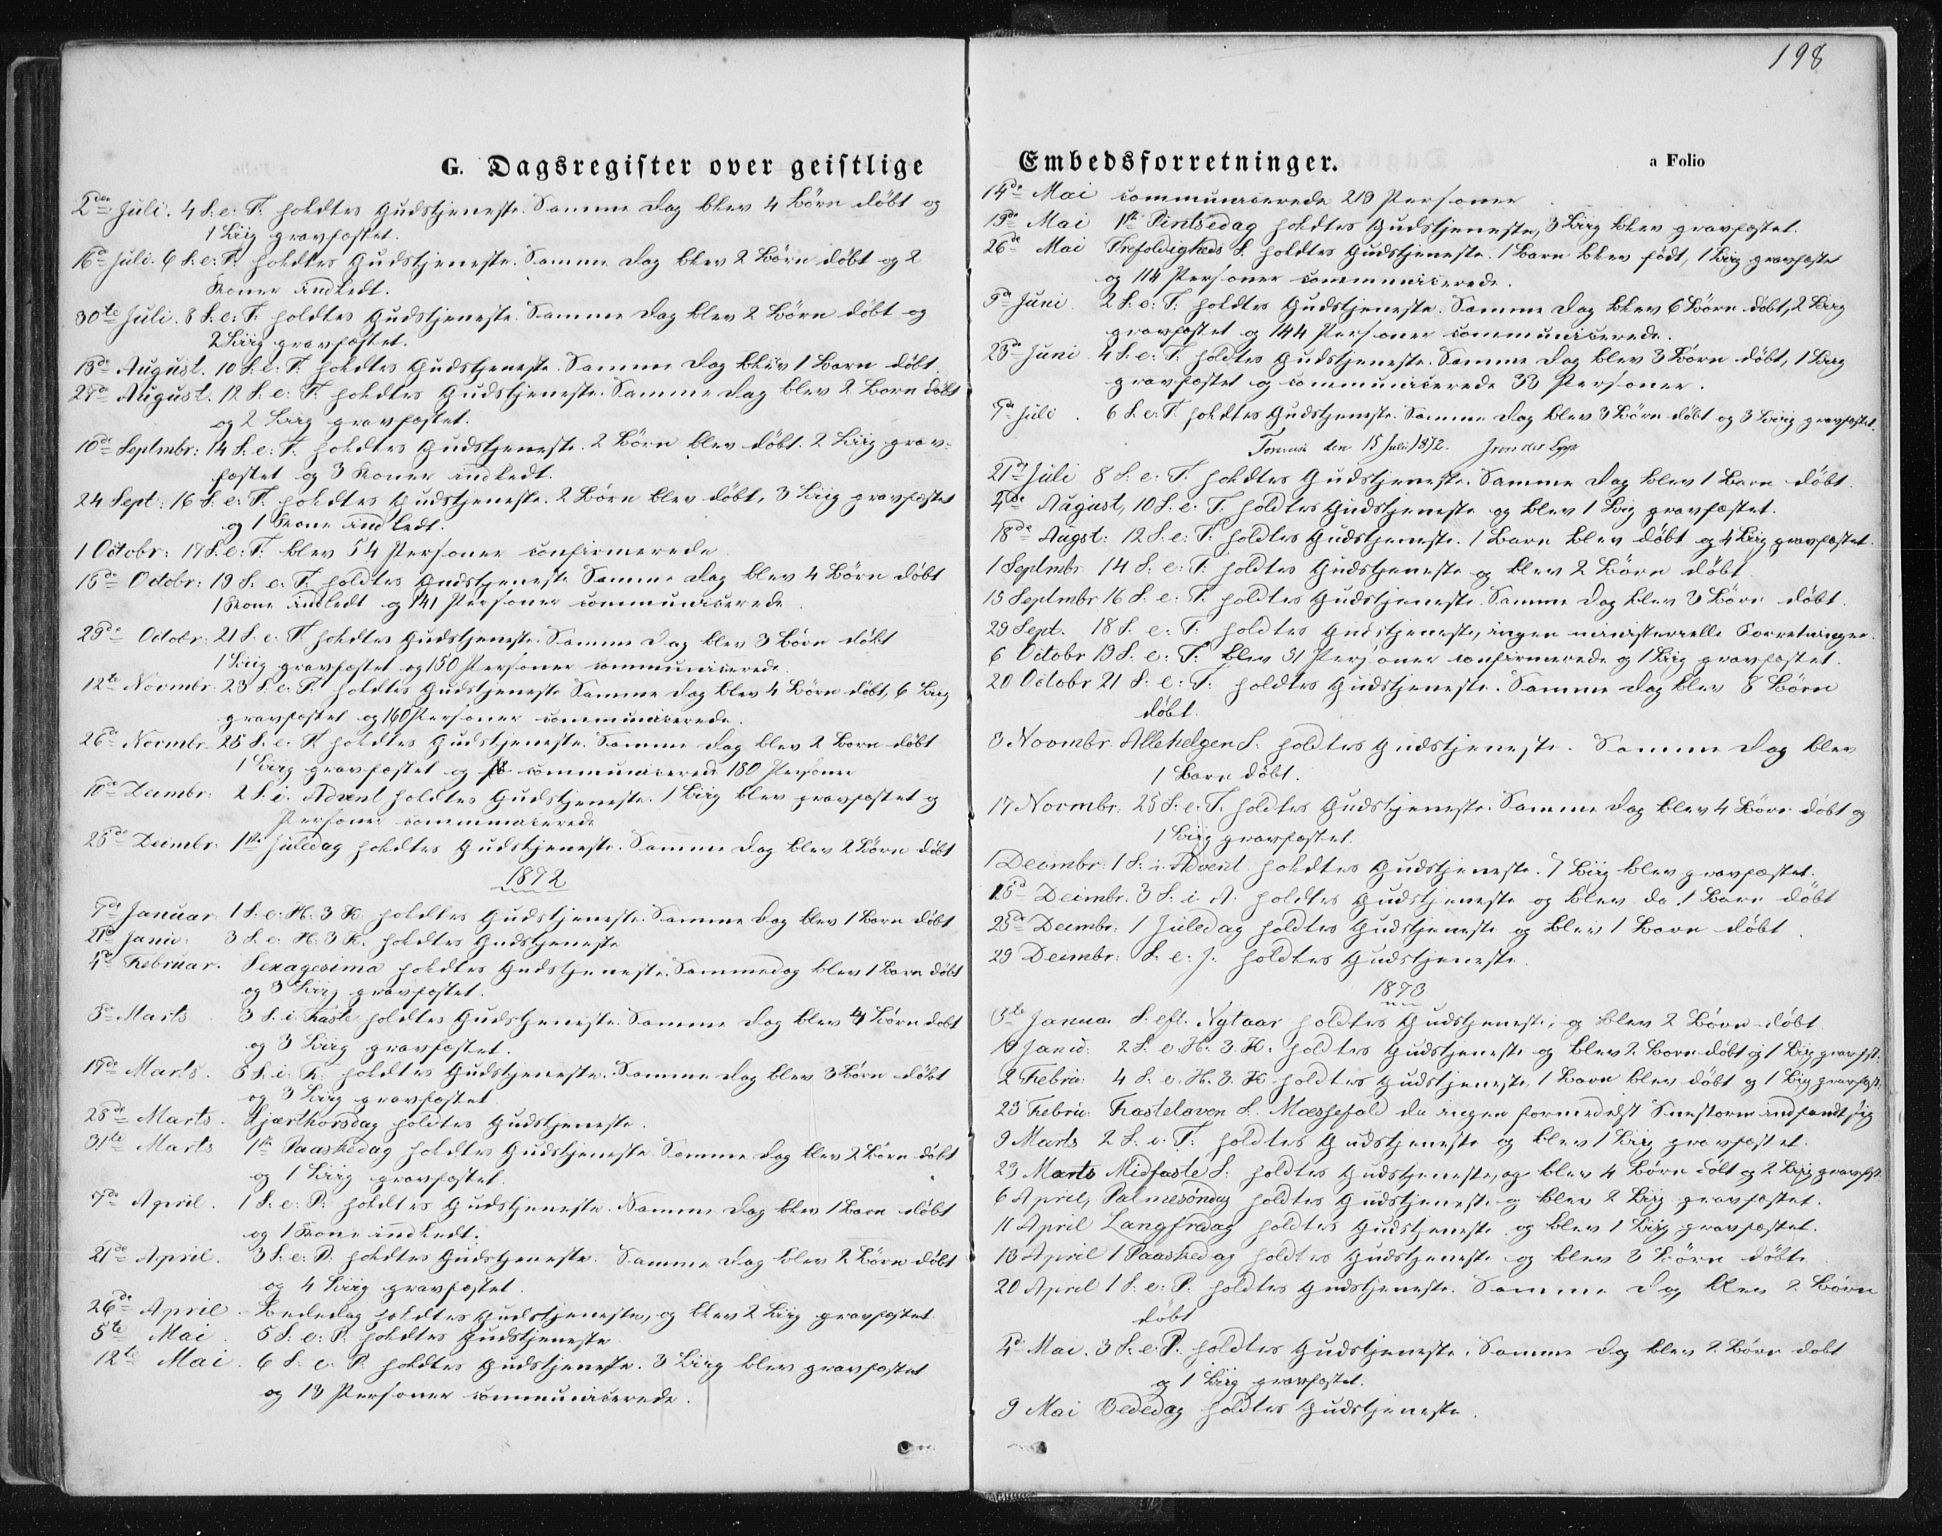 198
G. Dagsregister over geistlige
2den Juli. 4 S. e. T. holdtes Gudstjeneste. Samme Dag blev 4 Börn döbt og
1 Liig gravfæstet.
16de Juli. 6 S. e. T. holdtes Gudstjeneste. Samme Dag blev 2 Börn döbt og 2
Koner indledt.
30te Juli. 8 S. e. T. holdtes Gudstjeneste. Samme Dag blev 2 Börn döbt og
2 Liig gravfæstet.
13de August. 10 S. e. T. holdtes Gudstjeneste. Samme Dag blev 1 Barn döbt.
27de August. 12 S. e. T. holdtes Gudstjeneste. Samme Dag blev 2 Börn döbt
og 2 Liig gravfæstet.
10de Septmbr: 14 S. e. T. holdtes Gudstjeneste. 2 Börn blev döbt. 2 Liig grav-
fæstet og 3 Koner indledt.
24 Sept: 16 S. e. T. holdtes Gudstjeneste. 2 Börn blev döbt, 3 Liig gravfæstet
og 1 Kone indledt.
1 Octobr: 17 S. e. T. blev 54 Personer confirmerede.
15de Octobr: 19 S. e. T. holdtes Gudstjeneste Samme Dag blev 4 Börn döbt
1 Kone indledt og 141 Personer communicerede.
29de Octobr: 21 S. e. T. holdtes Gudstjeneste. Samme Dag blev 3 Börn döbt
1 Liig gravfæstet og 150 Personer communicerede.
12te Novmbr: 23 S. e. T. holdtes Gudstjeneste Samme Dag blev 4 Börn döbt, 6 Liig
gravfæstet og 160 Personer communicerede.
26de Novmbr. 25 S. e. T. holdtes Gudstjeneste. Samme Dag blev 2 Börn döbt
1 Liig gravfæstet og communicerede 180 Personer
10de Decmbr: 2 S. i. Advent holdtes Gudstjeneste. 1 Liig blev gravfæstet og
Personer communicerede
25de Decmbr: 1ste Juledag holdtes Gudstjeneste. Samme Dag blev 2 Börn döbt
1872
7de Januar 1 S. e. H. 3 K. holdtes Gudstjeneste. Samme Dag blev 1 Barn döbt
21de Janu: 3 S. e. H. 3 K. holdtes Gudstjeneste
4de Februar. Sexagesima holdtes Gudstjeneste. Samme Dag blev 1 Barn döbt
og 3 Liig gravfæstet.
3de Marts 3 S. i. Faste holdtes Gudstjeneste. Samme Dag blev 4 Börn döbt
og 3 Liig gravfæstet.
17de Marts. 5 S. i. F. holdtes Gudstjeneste. Samme Dag blev 3 Börn döbt
og 3 Liig gravfæstet
28de Marts. Skjærthorsdag holdtes Gudstjeneste.
31te Marts 1ste Paaskedag holdtes Gudstjeneste Samme Dag blev 2 Börn döbt
og 1 Liig gravfæstet.
7de April. 1 S. e. P. holdtes Gudstjeneste. Samme Dag blev 1 Barn döbt
og 1 Kone indledt.
21de April. 3 S. e. P. holdtes Gudstjeneste. Samme Dag blev 2 Börn döbt
og 4 Liig gravfæstet.
26de April. Bededag holdtes Gudstjeneste, og blev 2 Liig gravfæstet
5te Mai. 5 S. e. P. holdtes Gudstjeneste
12te Mai. 6 S. e. P. holdtes Gudstjeneste. 3 Liig blev gravfæstet
og 13 Personer communicerede.
Embedsforretninger. a Folio
14de Mai communicerede 219 Personer
19de Mai 1ste Pintsedag holdtes Gudstjeneste, 3 Liig blev gravfæstet.
26de Mai Trefoldigheds S. holdtes Gudstjeneste. 1 Barn blev födt, 1 Liig gravfæstet
og 114 Personer communicerede.
9de Juni 2 S. e. T. holdtes Gudstjeneste. Samme Dag blev 6 Börn döbt, 2 Liig
gravfæstet og 144 Personer communicerede.
23de Juni 4 S. e. T. holdtes Gudstjeneste. Samme Dag blev 3 Börn döbt, 1 Liig
gravfæstet og communicerede 33 Personer.
7de Juli. 6 S. e. T. holdtes Gudstjeneste. Samme Dag blev 3 Börn döbt og 3 Liig gravfæstet.
den 15 Juli 1872.
21de Juli 8 S. e. T. holdtes Gudstjeneste. Samme Dag blev 1 Barn döbt.
4de August, 10 S. e. T. holdtes Gudstjeneste og blev 1 Liig gravfæstet.
18de Augst: 12 S. e. T. holdtes Gudstjeneste. 1 Barn blev döbt og 4 Liig gravfæstet.
1 Septmbr 14 S. e. T. holdtes Gudstjeneste og blev 2 Börn döbt
15 Septmbr 16 S. e. T. holdtes Gudstjeneste. Samme Dag blev 3 Börn döbt.
29 Sept. 18 S. e. T. holdtes Gudstjeneste, ingen ministerielle Forretninger.
6 Octobr 19 S. e. T. blev 31 Personer confirmerede og 1 Liig gravfæstet.
20 Octobr 21 S. e. T. holdtes Gudstjeneste. Samme Dag blev 8 Börn
döbt.
3 Novmbr. Allehelgen S. holdtes Gudstjeneste. Samme Dag blev
1 Barn döbt.
17 Novmbr. 25 S. e. T. holdtes Gudstjeneste. Samme Dag blev 4 Börn döbt og
1 Liig gravfæstet.
1 Decmbr: 1 S. i. Advent holdtes Gudstjeneste. 7 Liig blev gravfæstet.
15de Decmbr. 3 S. i A. holdtes Gudstjeneste og blev da 1 Barn döbt
25de Decmbr: 1 Juledag holdtes Gudstjeneste og blev 1 Barn döbt.
29 Decmbr: S. e. J. holdtes Gudstjeneste.
1873
5te Janua S. eft. Nytaar holdtes Gudstjeneste, og blev 2 Börn döbt
19 Janu: 2 S. e. H. 3. K. holdtes Gudstjeneste og blev 2 Börn döbt og 1 Liig gravfst.
2 Febru: 4 S. e. H. 3. K holdtes Gudstjeneste, 1 Barn blev döbt og 1 Liig gravfæst.
23 Febru: Fastelaven S. Messefald da ingen formedelst Snestorm indfandt sig
9 Marts 2 S. i. F. holdtes Gudstjeneste og blev 1 Liig gravfæstet.
23 Marts Midfaste S. holdtes Gudstjeneste, og blev 4 Börn döbt og 2 Liig gravfst.
6 April, Palmesöndag holdtes Gudstjeneste og blev 2 Liig gravfæstet.
11 April Langfredag holdtes Gudstjeneste og blev 1 Liig gravfæstet.
13 April 1 Paaskedag holdtes Gudstjeneste og blev 3 Börn döbte
20 April 1 S. e. P. holdtes Gudstjeneste. Samme Dag blev 2 Börn
döbt
4de Mai. 3 S. e. P. holdtes Gudstjeneste. Samme Dag blev 2 Börn döbt
og 1 Liig gravfæstet.
9 Mai Bededag holdtes Gudstjeneste.